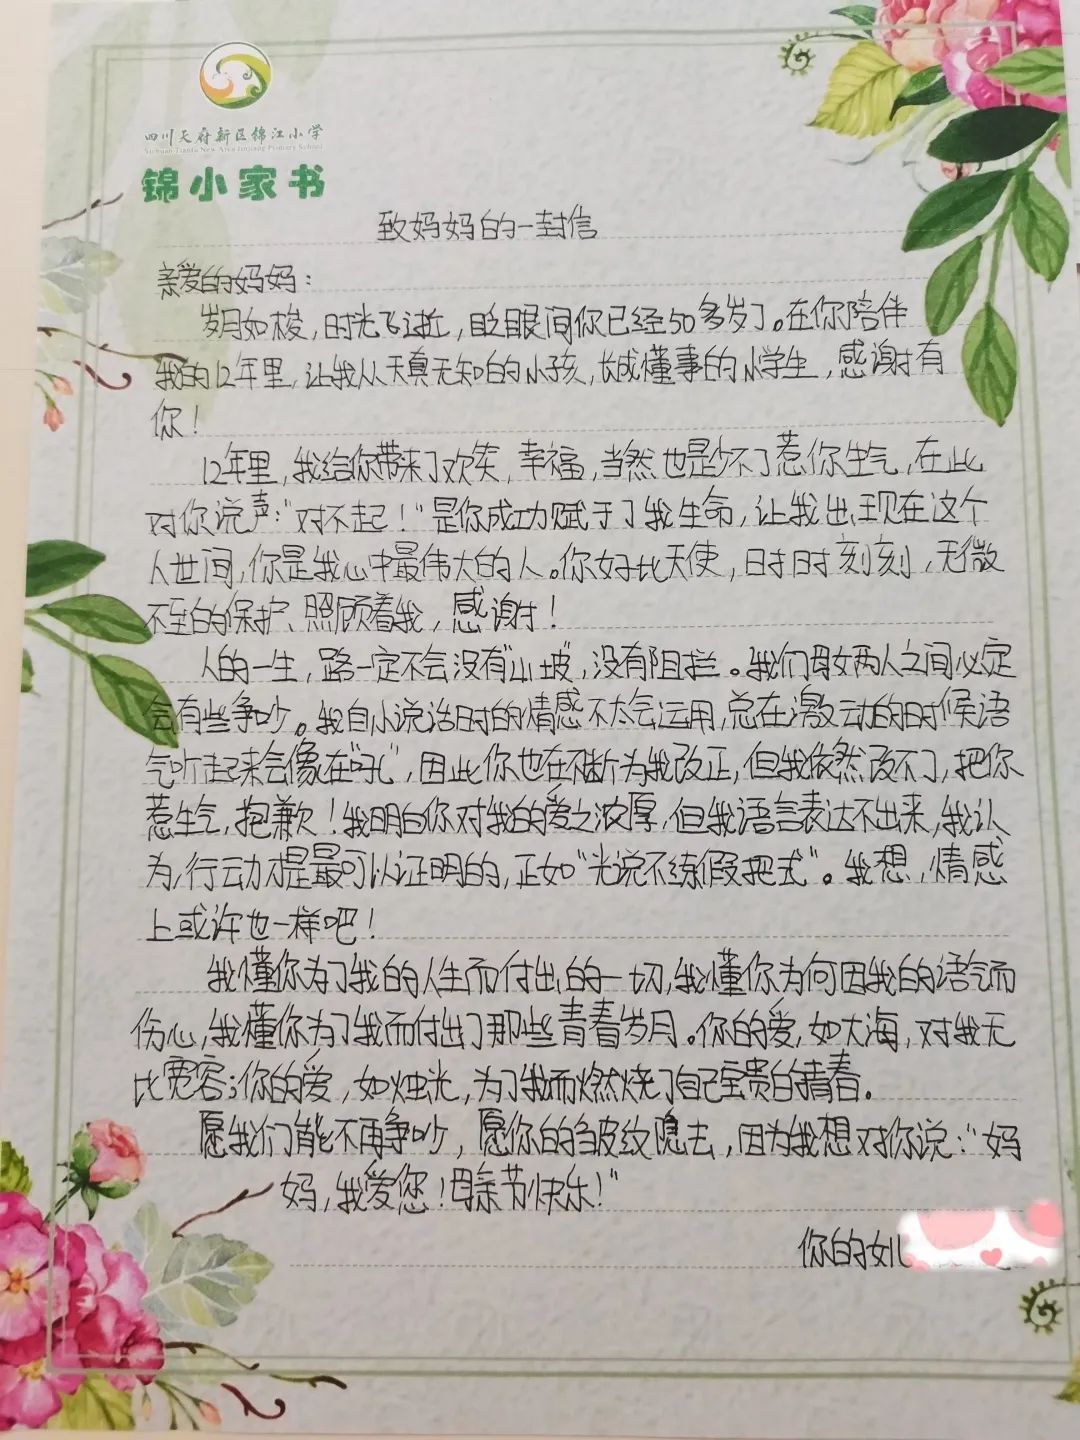 四川天府新区锦江小学
Sichuan Tianfu New Area Jinjiang Primary School
锦小家书
致妈妈的一封信
亲爱的妈妈:
岁月如梭,时光飞逝,眨眼间你已经50多岁了。在你陪伴
我的12年里,让我从天真无知的小孩,长成懂事的小学生,感谢有
你!
12年里,我给你带来了欢笑,幸福,当然也是少不了惹你生气,在此
对你说声:“对不起!”是你成功赋于了我生命,让我出现在这个
人世间,你是我心中最伟大的人。你好比天使,时时刻刻,无微
不至的保护、照顾着我,感谢!
人的一生,路一定不会没有“山坡”,没有阻拦。我们母女两人之间必定
会有些争吵。我自小说话时的情感不太会运用,总在激动的时候语
气听起来会像在“吼”,因此你也在不断为我改正,但我依然改不了,把你
惹生气,抱歉!我明白你对我的爱之浓厚,但我语言表达不出来,我认
为,行动才是最可以证明的,正如“光说不练假把式”。我想,情感
上或许也一样吧!
我懂你为了我的人生而付出的一切,我懂你为何因我的语气而
伤心,我懂你为了我而付出了那些青春岁月。你的爱,如大海,对我无
比宽容;你的爱,如烛光,为了我而燃烧了自己宝贵的青春。
愿我们能不再争吵,愿你的皱纹隐去,因为我想对你说:“妈
妈,我爱您!母亲节快乐!”
你的女儿